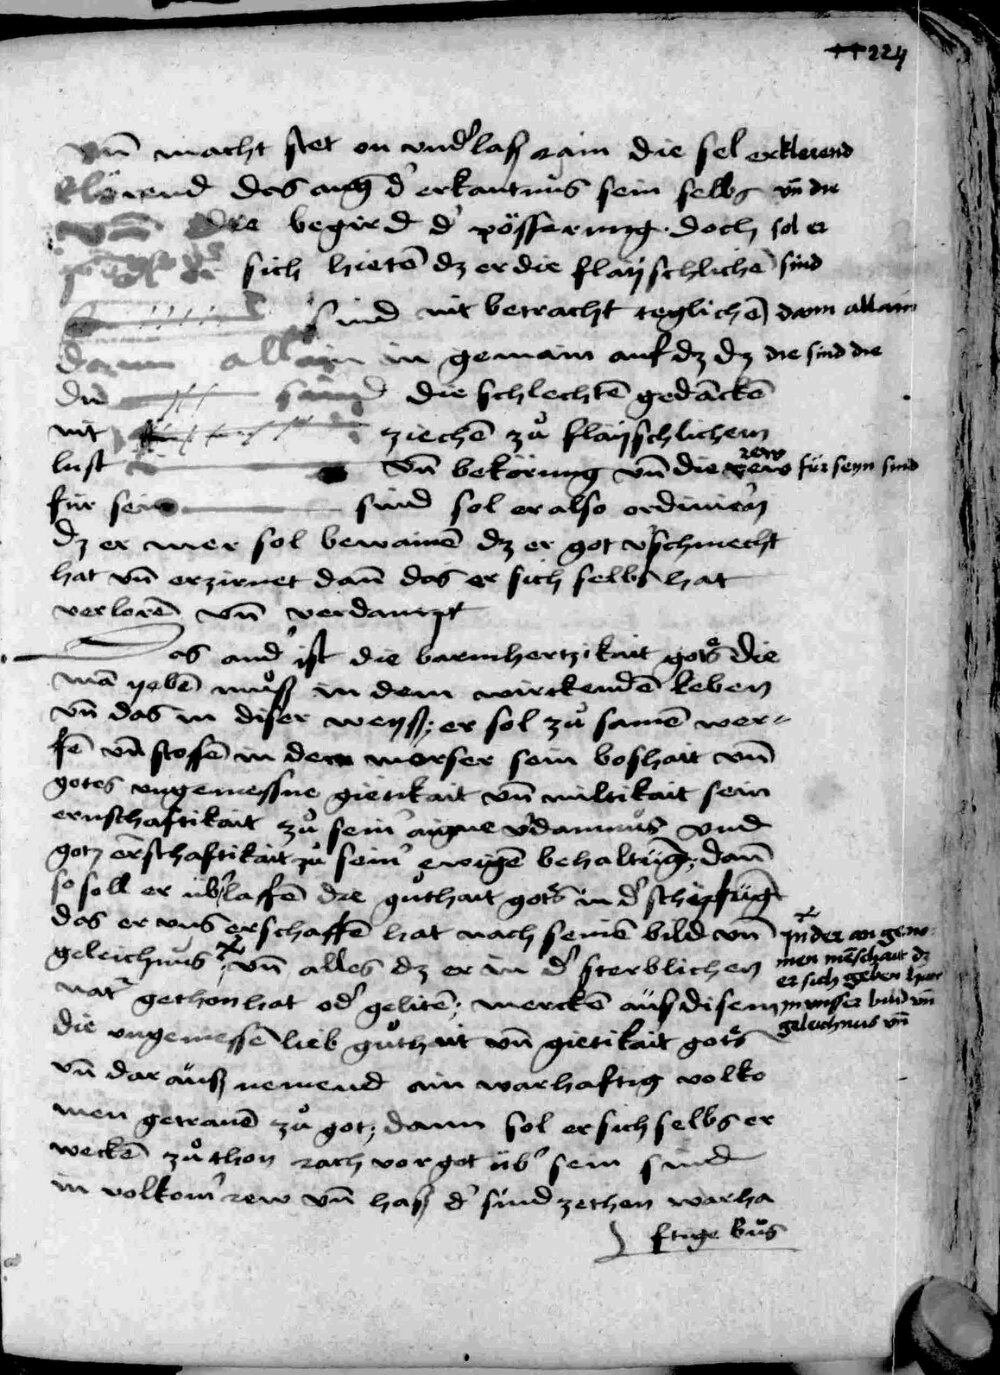 224
vn̄ macht stet on vnd'laß rain die sel erklerend
klörend das aug d' erkantnus sein selbs vn̄ die
die begird d' pösserung. doch sol er
sich hietē dz er die flaÿschlichē sind
sind nit betracht teglichē dann allain
dann allain in gemain auf dz dz die sind die
die sind die schlechtē gedāckē
nit ziechē zů flaÿschlichem
lust vn̄ bekörung vn̄ die rew rew für seyn sind
für sein sind sol er also ordiniern
dz er mer sol bewainē dz er got v'schmecht
hat vn̄ erzirnet dan̄ das er sich selbs hat
verlorē vn̄ verdampt
Das and' ist die barmhertzikait gots die
mā yebē můß in dem wirckendē leben
vn̄ das in diser weyß; er sol zů samē wer-
fē vn̄ stosē in dem morser sein boshait vn̄
gotes vngemessne gietikait vn̄ miltikait sein
ernschaftikait zů sein' aigne v'damnus vnd
gotz erschaftikait zů sein' ewigē behaltūg; dan̄
so soll er üb'laffē die gůthait gots in d' schepfūg
das er vns erschaffē hat nach seinē bild vn̄
geleichnus; vn̄ alles dz er in d' sterblichen
natˀ gethon hat od' gelitē; merckē aüs disem
die vngemessē lieb gůthait vn̄ gietikait gots
vn̄ dar auß nemend ain warhaftig volko
men getrauē zů got; dann sol er sich selbs er
weckē zů thon rach vor got üb' sein sind
in volkom' rew vn̄ haß d' sind zethen warha
ftige bůs
In der an geno-
men mēschait dz
er sich geben hat
in vnser bild vn̄
geleichnus vn̄